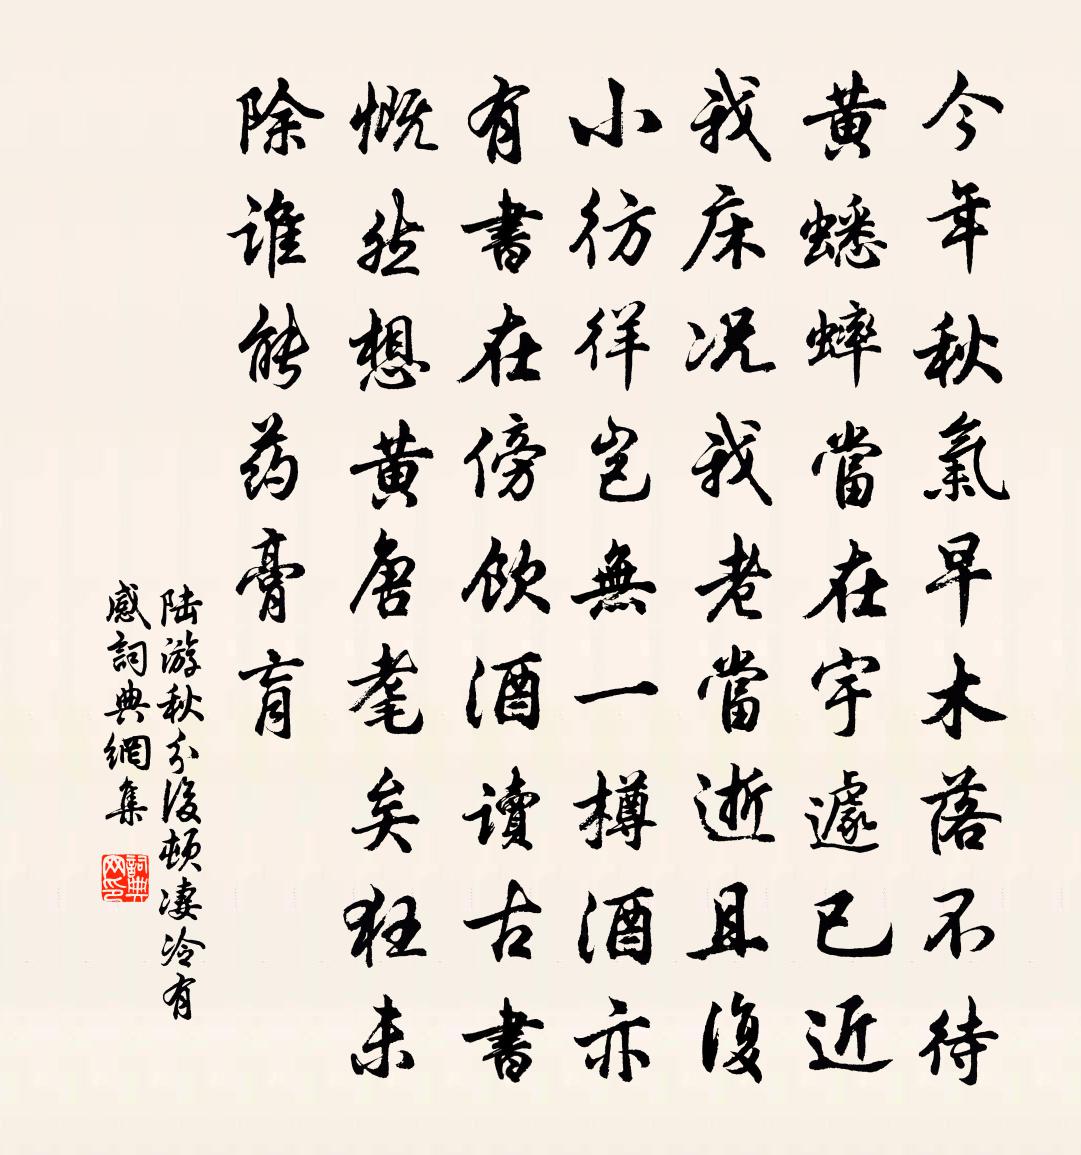 今年秋氣早木落不待
黃蟋蟀當在宇遽已近
我床況我老當逝且復
小彷徉豈無一樽酒亦
有書在傍飲酒读古書
慨然想黃唐耄矣狂未
除谁能药膏肓
陆游秋分後頓淒冷有
感詞典網集
詞典网印